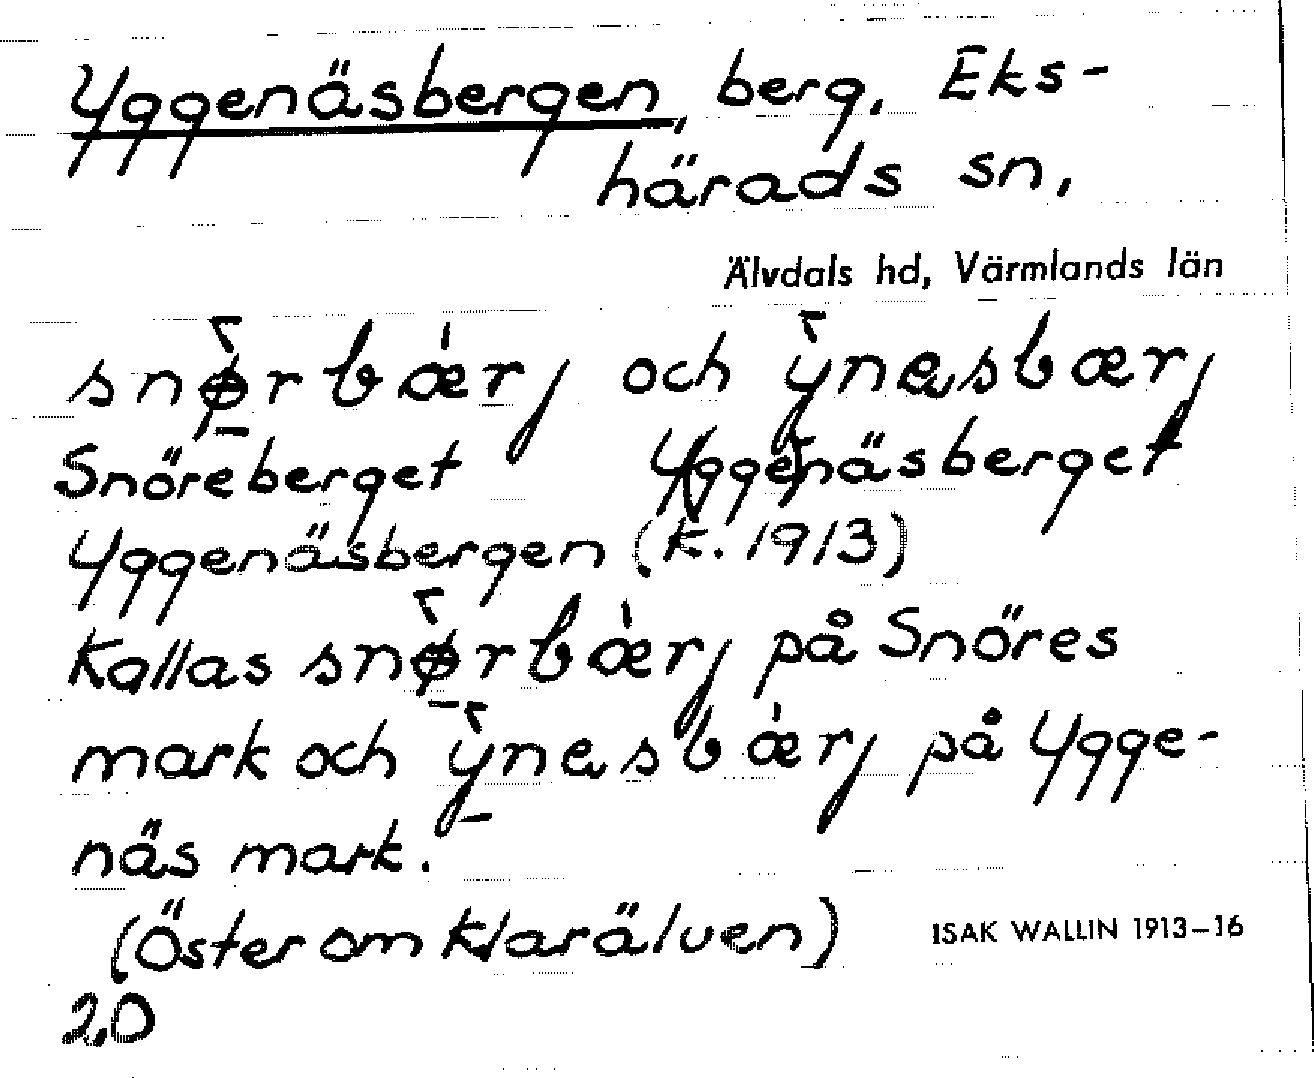 Yggenäsbergen, berg, Eks-
härads sn,
Älvdals hd, Värmlands län
snø̀rbǽrj och ỳnesbærj
Snöreberget Yggenäsberget
Yggenäsbergen (k. 1913)
Kallas snø̀rbǽrj på Snöres
mark och ỳnesbǽrj på Ygge-
näs mark.
(Öster om Klarälven)
ISAK WALLIN 1913–16
2,0